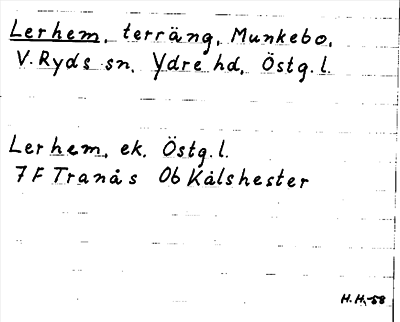 Lerhem, terräng, Munkebo,
V. Ryds sn, Ydre hd, Östg. l.
Lerhem, ek, Östg. l.
7 F Tranås 0b Kålshester
H. H. -58